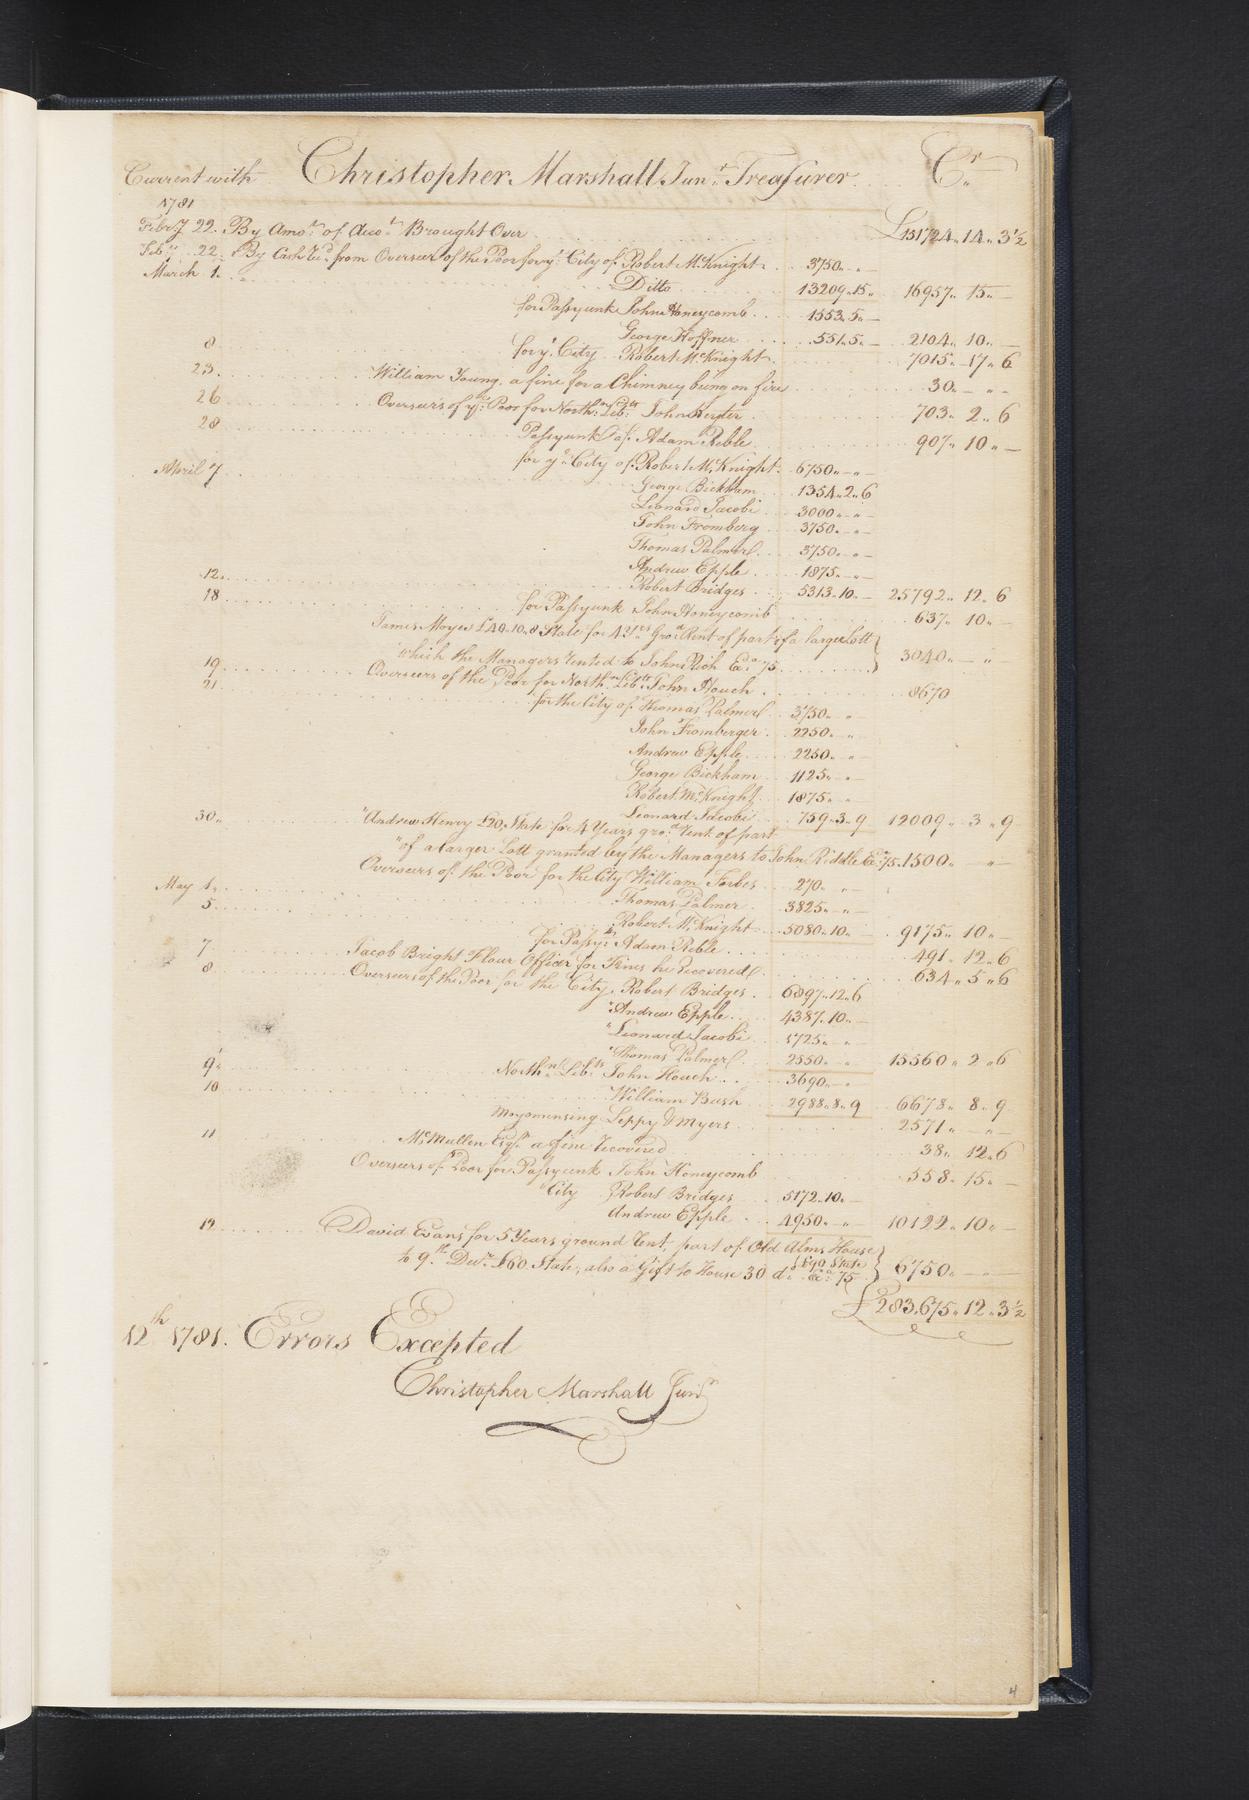 Current with Christopher Marshall Junr. Treasurer Cr.
1781
Febry 22. By Amot. of Acot. Brought Over £131724..14..3½
Feby. 22. By Cash Recd. from Overseers of the Poor for ye. City of Robert McKnight 3750..-..-
March 1. Ditto 13209..15.. 16957..15..-
for Passyunk John Honeycomb 1553..5..-
George Hoffner 551..5..- 2104..10..-
8 for ye. City Robert McKnight 7015..17..6
23. William Young, a fine for a Chimney being on fire 30..-..-
26 Overseers of ye. Poor for North.n Libts. John Keyler 703..2..6
28 Passyunk of Adam Reble 907..10..-
April 7 for ye. City of Robert McKnight 6750..-..-
George Bickham 1354..2..6
Leonard Jacobi 3000..-..-
John Fromberg 3750..-..-
Thomas Palmer 3750..-..-
Andrew Epple 1875..-..-
12.. Robert Bridges 5313..10..- 25792..12..6
18 for Passyunk John Honeycomb 637..10..-
James Moyes £40..10..8 State for 4 Yrs. Grod. Rent of part of a larger Lott
which the Managers rented to John Rich Ea. 75 3040..-..-
19. Overseers of the Poor for North.n Libts. John Houch 8670
21 for the City of Thomas Palmer 3750..-..
John Fromberger 2250..-..
Andrew Epple 2250..-..
George Bickham 1125..-..
Robert McKnight 1875..-..
Leonard Jacobi 759..3..9 12009..3..9
30.. "Andrew Henry £20, State for 4 Years gro.d rent of part
"of a larger Lott granted by the Managers to John Riddle Ea. 75. 1500..-..-
Overseers of the Poor for the City William Forbes 270..-..
May 1.. Thomas Palmer 3825..-..-
5 Robert McKnight 5080..10..- 9175..10..-
for Passyk. Adam Reble 491..12..6
7 Jacob Bright Flour Officer for Fines he Recovered 634..5..6
8 Overseers of the Poor for the City, Robert Bridges 6897..12..6
"Andrew Epple 4387..10..-
"Leonard Jacobi 1725..-..
"Thomas Palmer 2550..-.. 15560..2..6
9. North.n Libts. John Houch 3690..-..
10 William Bush 2988..8..9 6678..8..9
Moyamensing Leppy & Myers 2571..-..-
11 McMullen Esqr. a fine recovered 38..12..6
Overseers of Poor for Passyunk John Honeycomb 558..15..-
City Robert Bridges 5172..10..-
Andrew Epple 4950..-.. 10122..10..-
12 David Evans for 5 Years ground Rent, part of Old Alms House
to 9th. Decr. £60. State, also a Gift to House 30 do. £90 State Ea. 75 6750..-..-
£283.675..12..3½
12th 1781. Errors Excepted
Christopher Marshall Junr
4